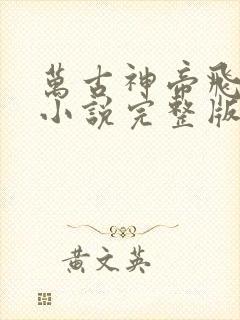 萬古神帝飛
小說完整版
黃文英